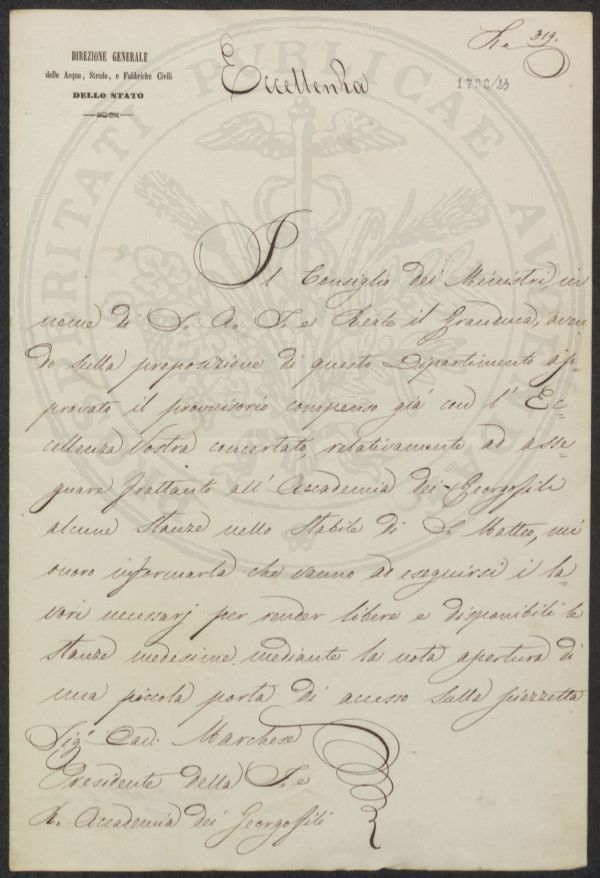 DIREZIONE GENERALE
delle Acque, Strade, e Fabbriche Civili
DELLO STATO
319.
1796/23
Eccellenza
PROSPERITATI PUBLICAE AUGENDAE
Il Consiglio dei Ministri, in
nome di S. A. I. e Reale il Granduca, aven-
do sulla proposizione di questo Dipartimento ap-
provato il provvisorio compenso già con l' Ec-
cellenza Vostra concertato, relativamente ad asse-
gnare frattanto all' Accademia dei Georgofili
alcune stanze nello Stabile di S. Matteo, mi
onoro informarla che vanno ad eseguirsi i la-
vori necessarj per render libere e disponibili le
stanze medesime mediante la nota apertura di
una piccola porta di accesso sulla piazzetta
Sig.r Cav. Marchese
Presidente della I. e
R. Accademia dei Georgofili